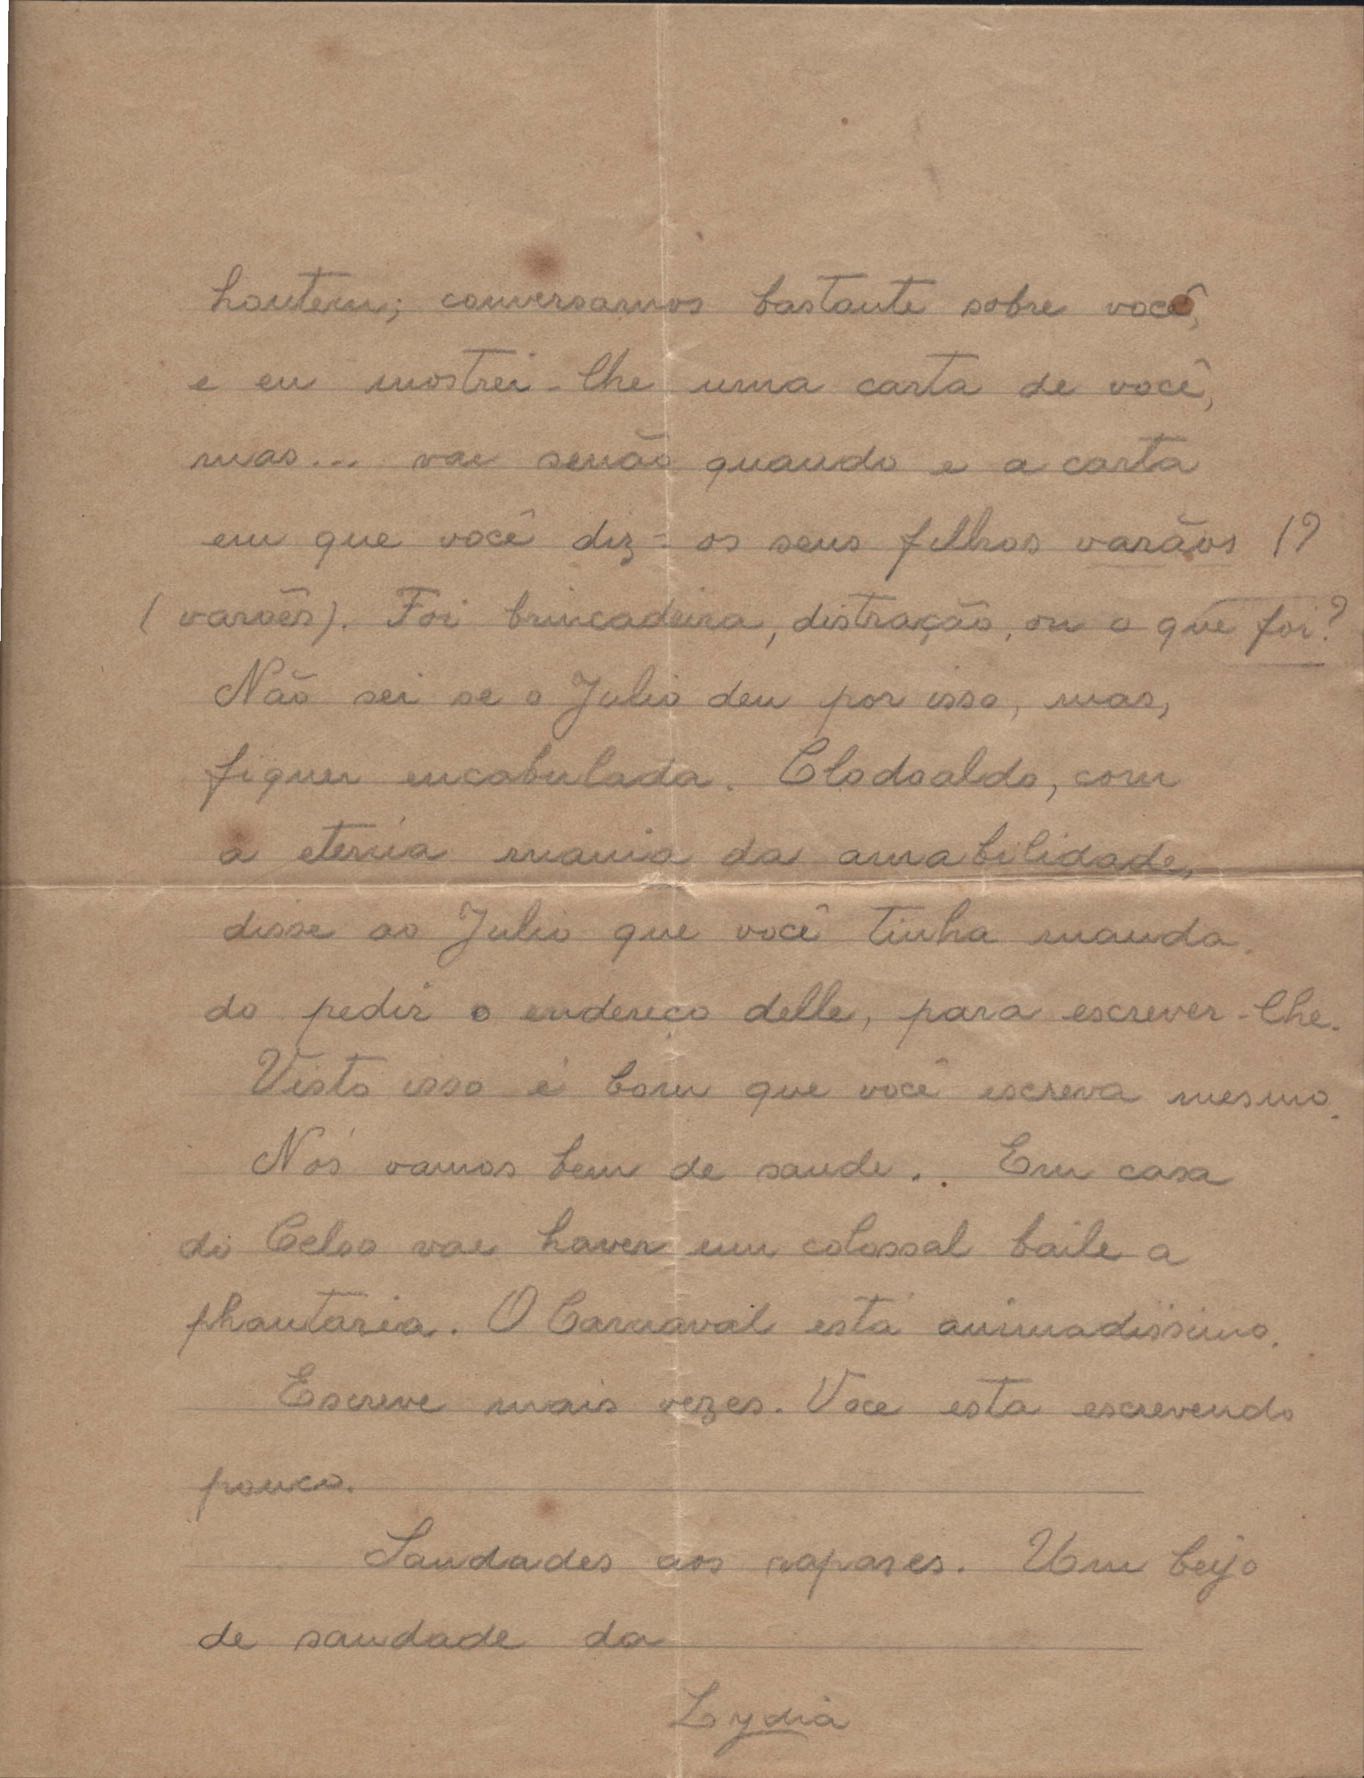 hontem; conversamos bastante sobre você,
e eu mostrei-lhe uma carta de você,
mas... vae senão quando e a carta
em que você diz = os seus filhos varãos !?
(varões). Foi brincadeira, distração, ou o que foi?
Não sei se o Julio deu por isso, mas,
fiquei encabulada. Clodoaldo, com
a eterna mania da amabilidade,
disse ao Julio que você tinha manda-
do pedir o endereço delle, para escrever-lhe.
Visto isso é bom que você escreva mesmo.
Nós vamos bem de saude. Em casa
do Celso vae haver um colossal baile a
phantasia. O Carnaval está animadissimo.
Escreve mais vezes. Voce esta escrevendo
pouco.
Saudades aos rapases. Um beijo
de saudade da
Lydia